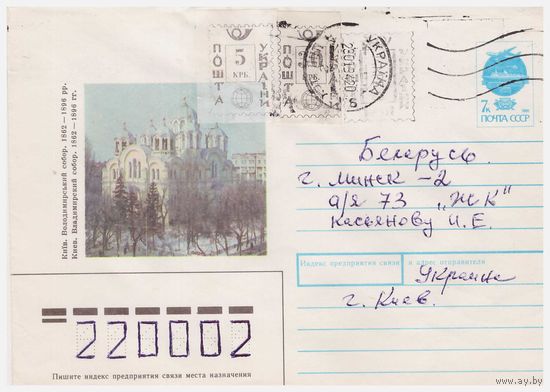 ПОШТА
5
КРБ.
УКРАЇНИ
ПОШТА
УКРАЇНА
7к
ПОЧТА СССР
Київ. Володимирський собор. 1862—1896 рр.
Киев. Владимирский собор. 1862—1896 гг.
Беларусь
г. Минск-2
а/я 73 „ЖК"
Касьянову И.Е.
Индекс предприятия связи и адрес отправителя
Украина
г. Киев.
220002
Пишите индекс предприятия связи места назначения
www.ay.by